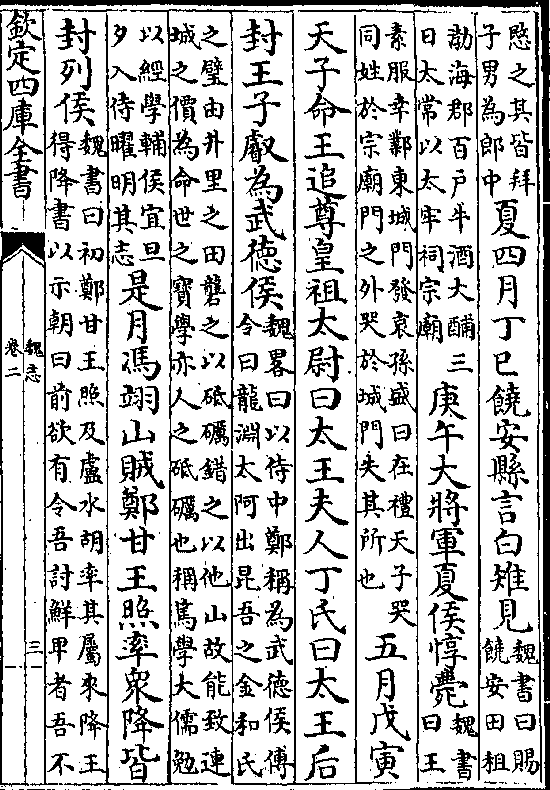 愍之其皆拜
子男為郎中
夏四月丁巳饒安縣言白雉見
魏書曰賜
饒安田租
勃海郡百户牛酒大酺三
日太常以太牢祠宗廟
庚午大將軍夏侯惇薨
魏書
曰王
素服幸鄴東城門發哀孫盛曰在禮天子哭
同姓於宗廟門之外哭於城門失其所也
五月戊寅
天子命王追尊皇祖太尉曰太王夫人丁氏曰太王后
封王子叡為武德侯
魏畧曰以侍中鄭稱為武德侯傅
令曰龍淵太阿出昆吾之金和氏
之璧由井里之田礱之以砥礪錯之以他山故能致連
城之價為命世之寶學亦人之砥礪也稱篤學大儒勉
以經學輔侯宜旦
夕入侍曜明其志
是月馮翊山賊鄭甘王照率衆降皆
封列侯
魏書曰初鄭甘王照及盧水胡率其屬來降王
得降書以示朝曰前欲有令吾討鮮卑者吾不
欽定四庫全書
魏志
卷二
三